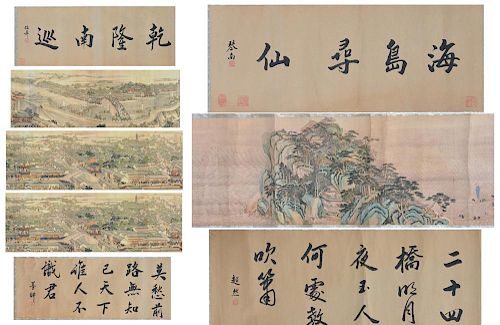 乾隆南巡
莫愁前
路無知
己天下
誰人不
識君
海島尋仙
琴南
二十四
橋明月
夜玉人
何處教
吹簫
超然